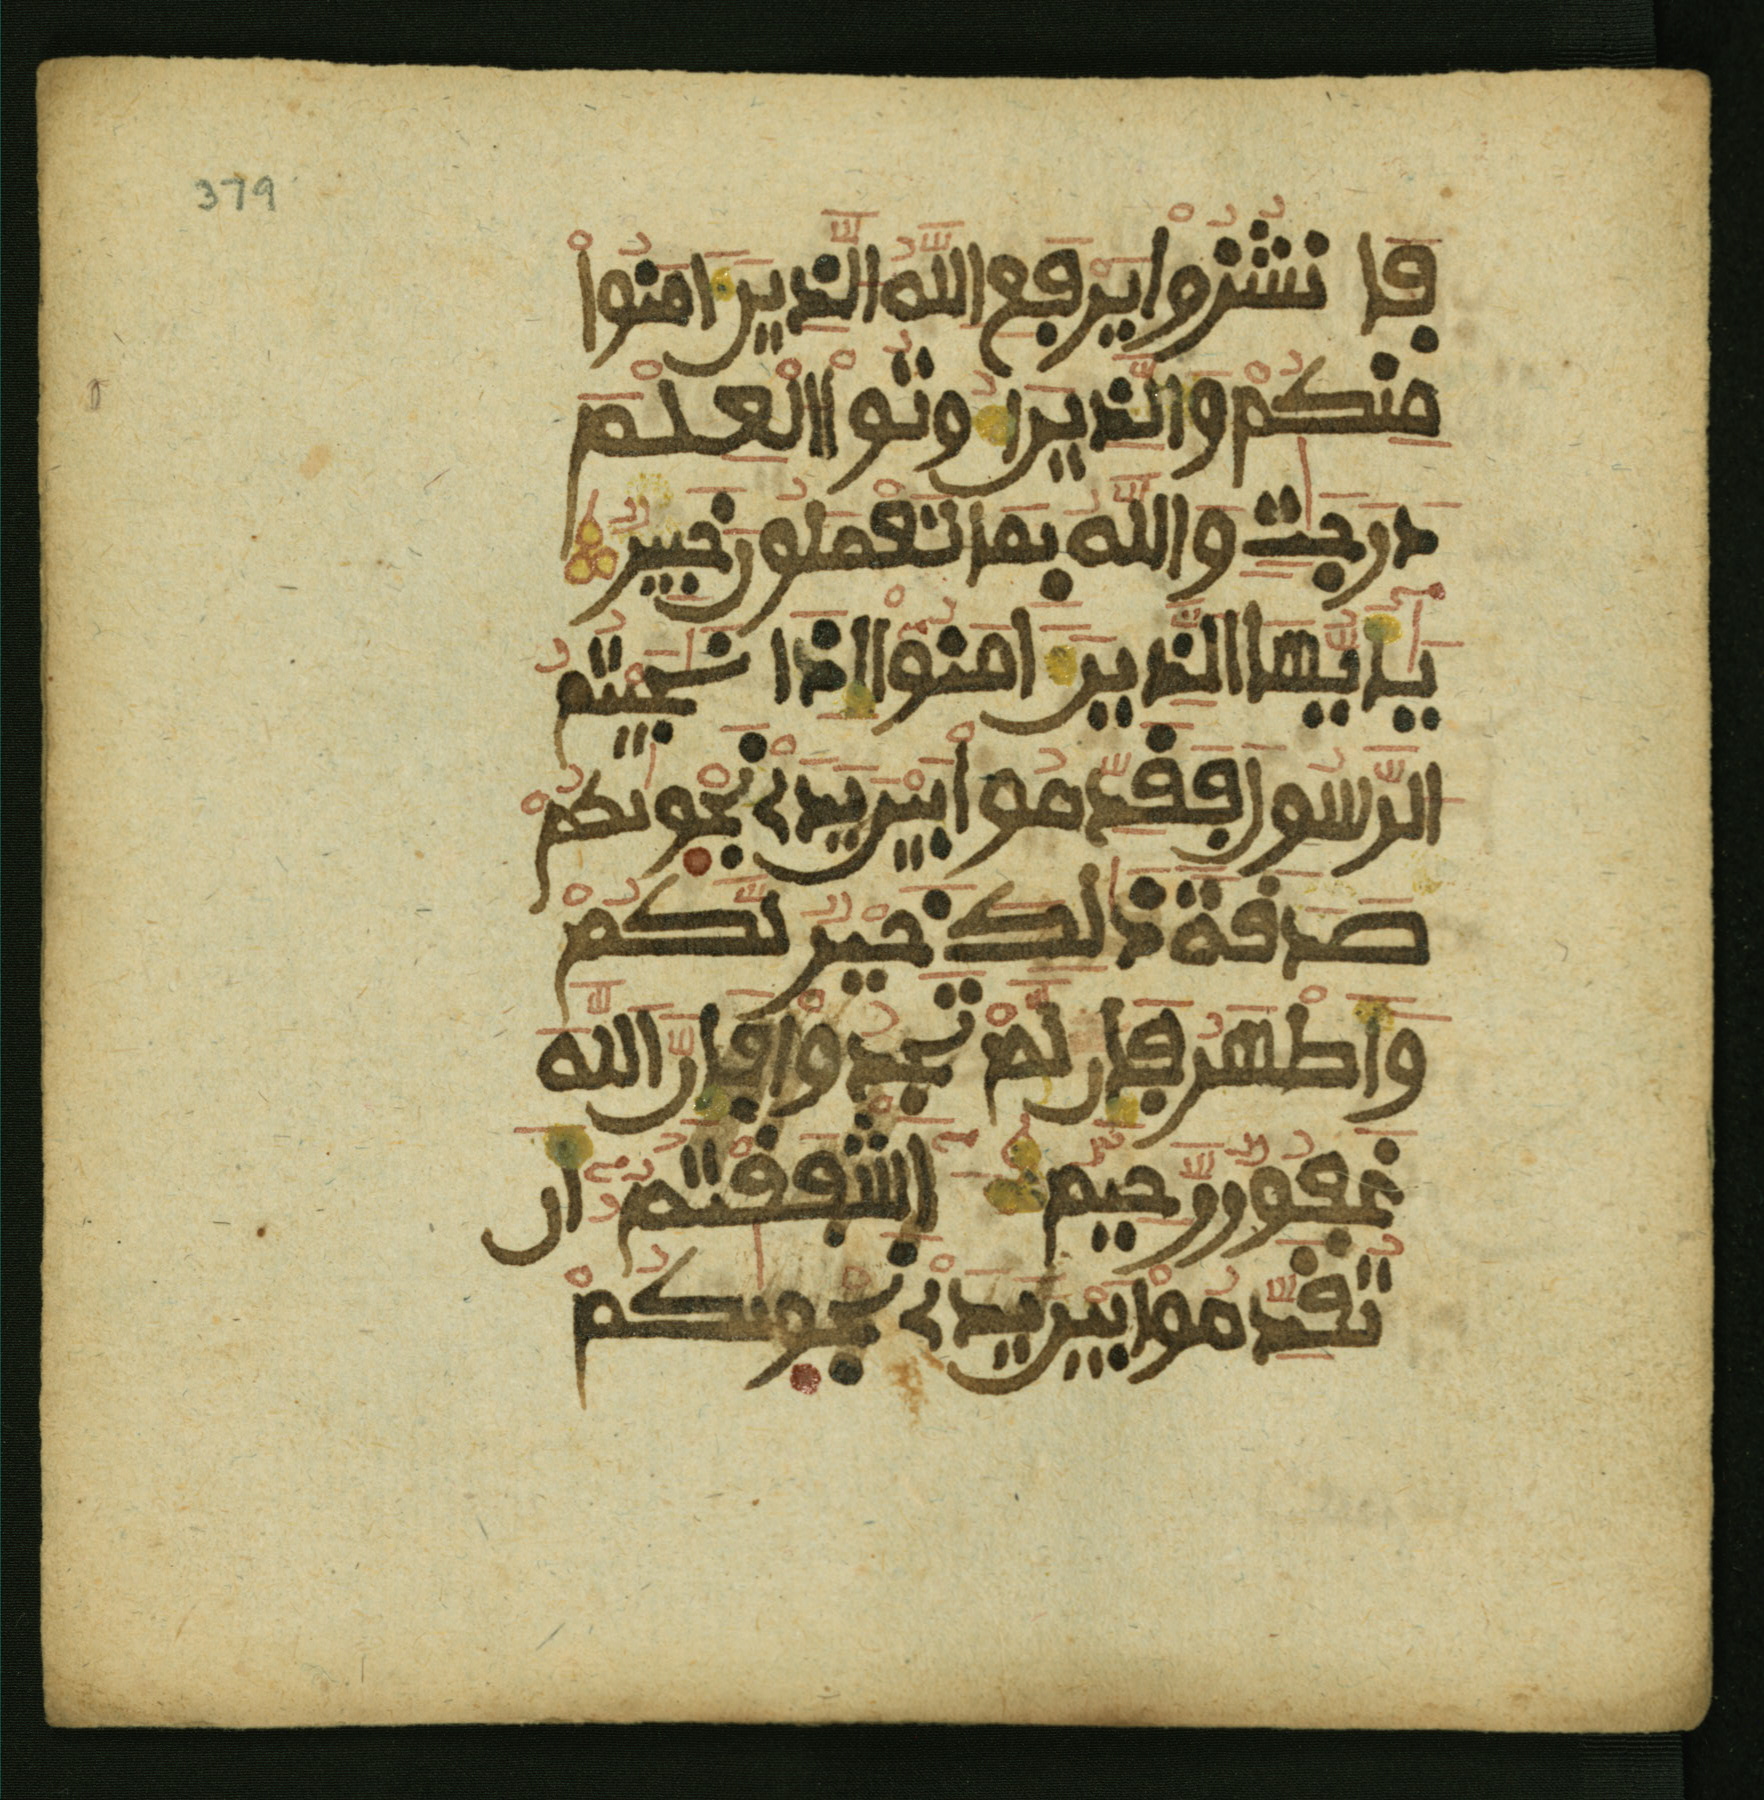 379
فا نشزوا يرفع الله الذين امنوا
منكم والذين اوتوا العلم
درجت والله بما تعملون خبير
يايها الذين امنوا اذا نجيتم
الرسول فقدموا بين يدى نجويكم
صدقة ذلك خير لكم
واطهر فان لم تجدوا فان الله
غفور رحيم اشفقتم ان
تقدموا بين يدى نجويكم